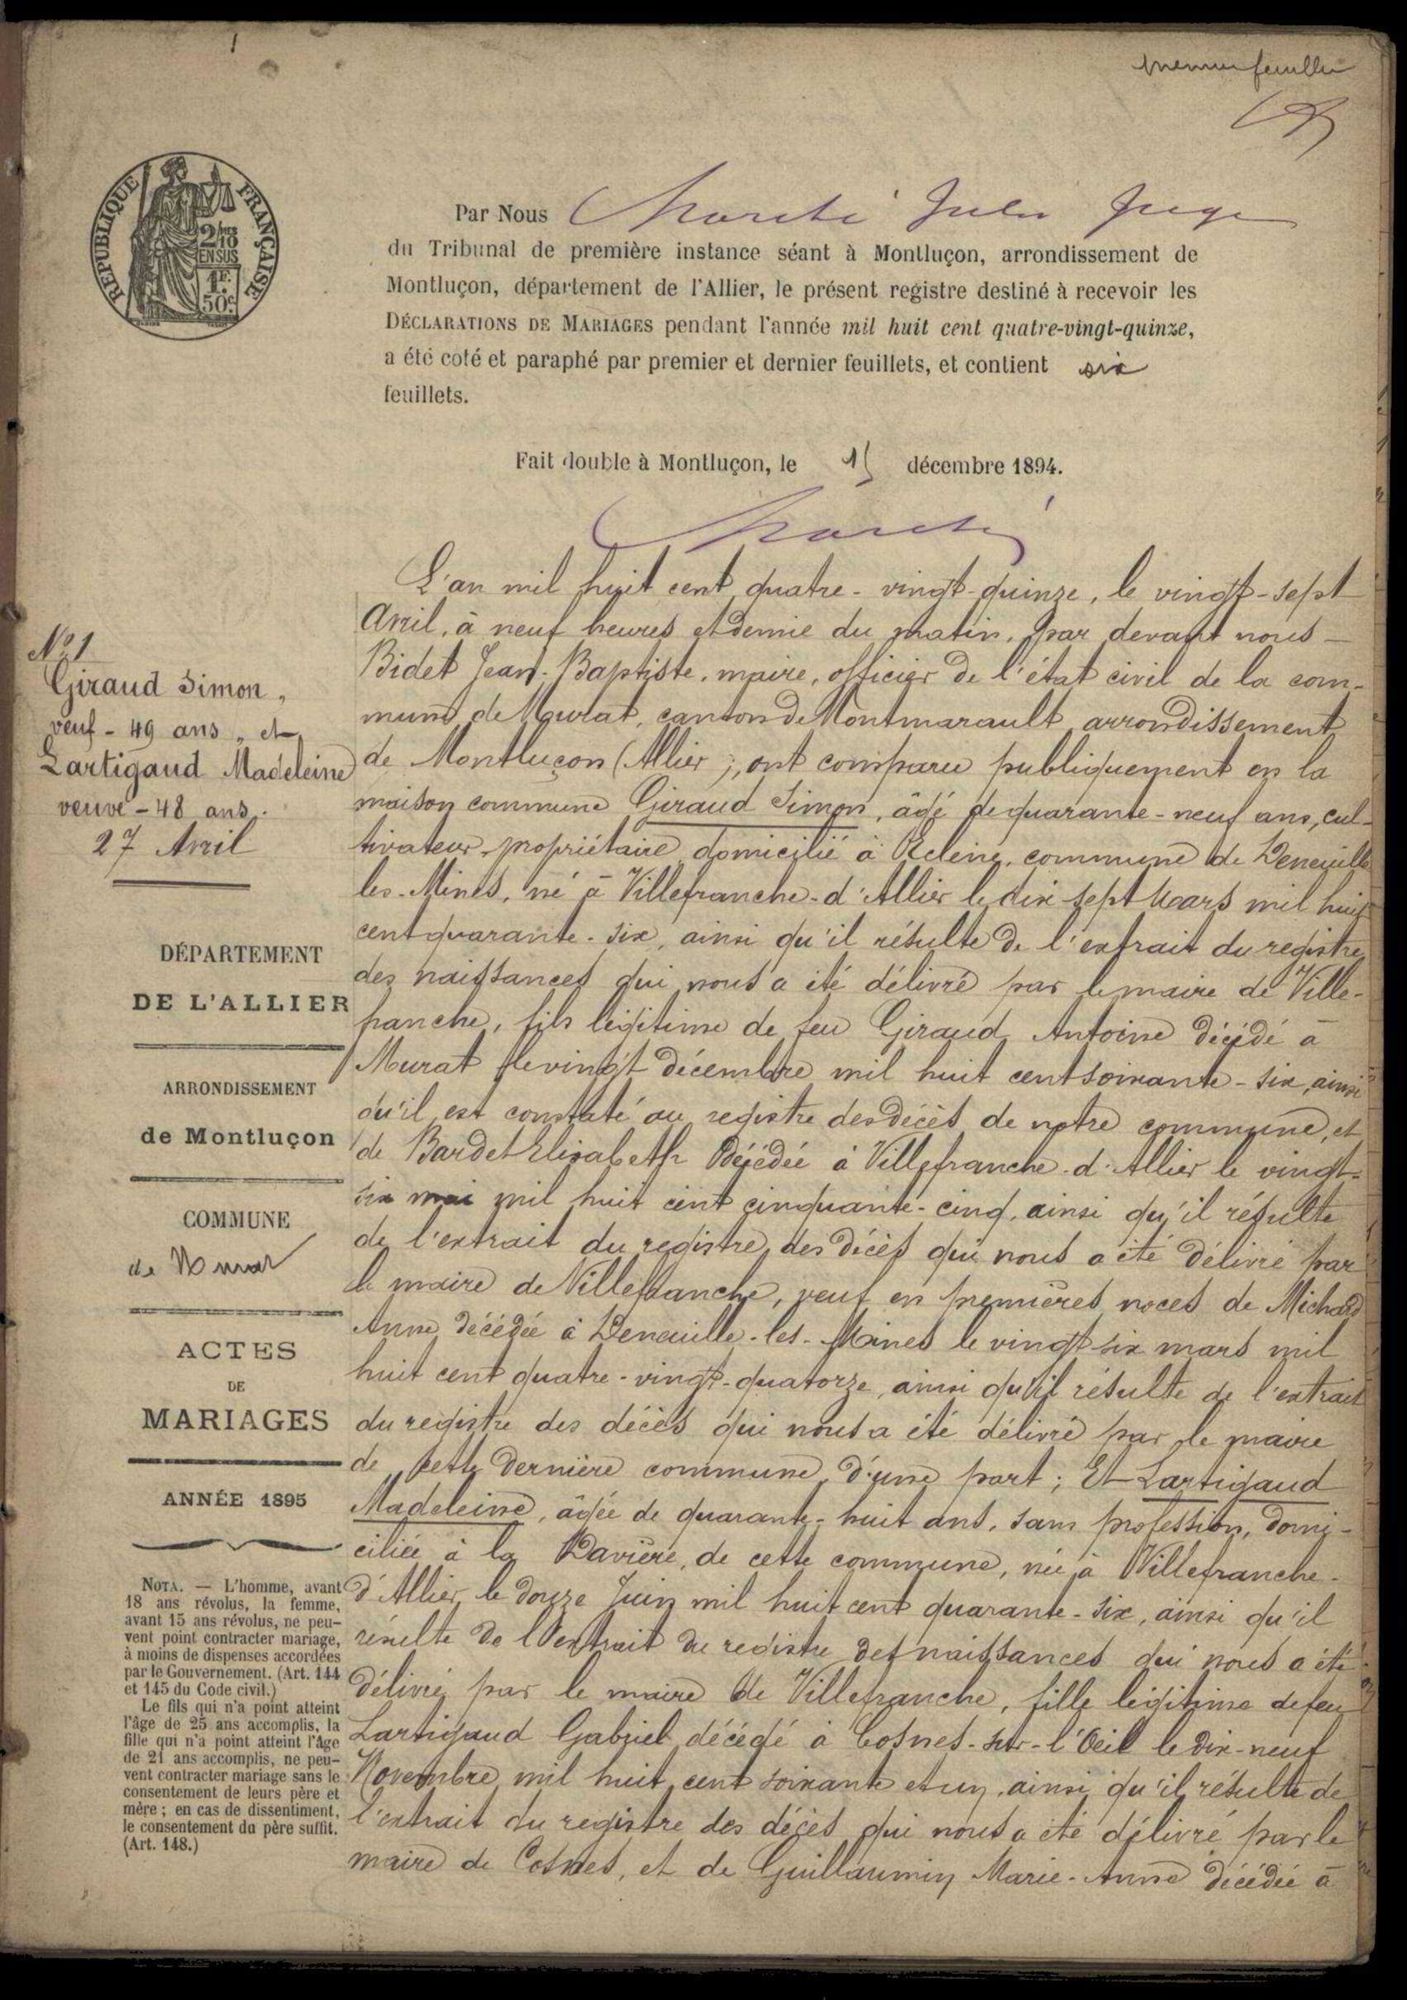 1
premier feuillet
RÉPUBLIQUE FRANÇAISE
2/10
EN SUS
1F.
50c.
Par Nous Marché Jules Juge
du Tribunal de première instance séant à Montluçon, arrondissement de
Montluçon, département de l'Allier, le présent registre destiné à recevoir les
DÉCLARATIONS DE MARIAGES pendant l'année mil huit cent quatre-vingt-quinze,
a été coté et paraphé par premier et dernier feuillets, et contient six
feuillets.
Fait double à Montluçon, le 15 décembre 1894.
Marché
N° 1
Giraud Simon,
veuf - 49 ans, et
Lartigaud Madeleine
veuve - 48 ans.
27 Avril
DÉPARTEMENT
DE L'ALLIER
ARRONDISSEMENT
de Montluçon
COMMUNE
de Murat
ACTES
DE
MARIAGES
ANNÉE 1895
NOTA. — L'homme, avant
18 ans révolus, la femme,
avant 15 ans révolus, ne peu-
vent point contracter mariage,
à moins de dispenses accordées
par le Gouvernement. (Art. 144
et 145 du Code civil.)
Le fils qui n'a point atteint
l'âge de 25 ans accomplis, la
fille qui n'a point atteint l'âge
de 21 ans accomplis, ne peu-
vent contracter mariage sans le
consentement de leurs père et
mère ; en cas de dissentiment,
le consentement du père suffit.
(Art. 148.)
L'an mil huit cent quatre-vingt-quinze, le vingt-sept
Avril, à neuf heures et demie du matin, par devant nous
Bidet Jean-Baptiste, maire, officier de l'état civil de la com-
mune de Murat, canton de Montmarault, arrondissement
de Montluçon (Allier), ont comparu publiquement en la
maison commune Giraud Simon, âgé de quarante-neuf ans, cul-
tivateur-propriétaire, domicilié à commune de Deneuille
les-Mines, né à Villefranche-d'Allier le dix-sept Mars mil huit
cent quarante-six, ainsi qu'il résulte de l'extrait du registre
des naissances qui nous a été délivré par le maire de Ville-
franche, fils légitime de feu Giraud Antoine décédé à
Murat le vingt décembre mil huit cent soixante-six, ainsi
qu'il est constaté au registre des décès de notre commune, et
de Bardet Elisabeth décédée à Villefranche-d'Allier le vingt-
six mai mil huit cent cinquante-cinq, ainsi qu'il résulte
de l'extrait du registre des décès qui nous a été délivré par
le maire de Villefranche, veuf en premières noces de Michard
Anne décédée à Deneuille-les-Mines le vingt-six mars mil
huit cent quatre-vingt-quatorze, ainsi qu'il résulte de l'extrait
du registre des décès qui nous a été délivré par le maire
de cette dernière commune, d'une part ; Et Lartigaud
Madeleine, âgée de quarante-huit ans, sans profession, domi-
ciliée à la Ravière, de cette commune, née à Villefranche-
d'Allier, le douze Juin mil huit cent quarante-six, ainsi qu'il
résulte de l'extrait du registre des naissances qui nous a été
délivré par le maire de Villefranche, fille légitime de feu
Lartigaud Gabriel décédé à Cosnes-sur-l'Oeil le dix-neuf
Novembre mil huit cent soixante et un, ainsi qu'il résulte de
l'extrait du registre des décès qui nous a été délivré par le
maire de Cosnes, et de Guillaumin Marie-Anne décédée à